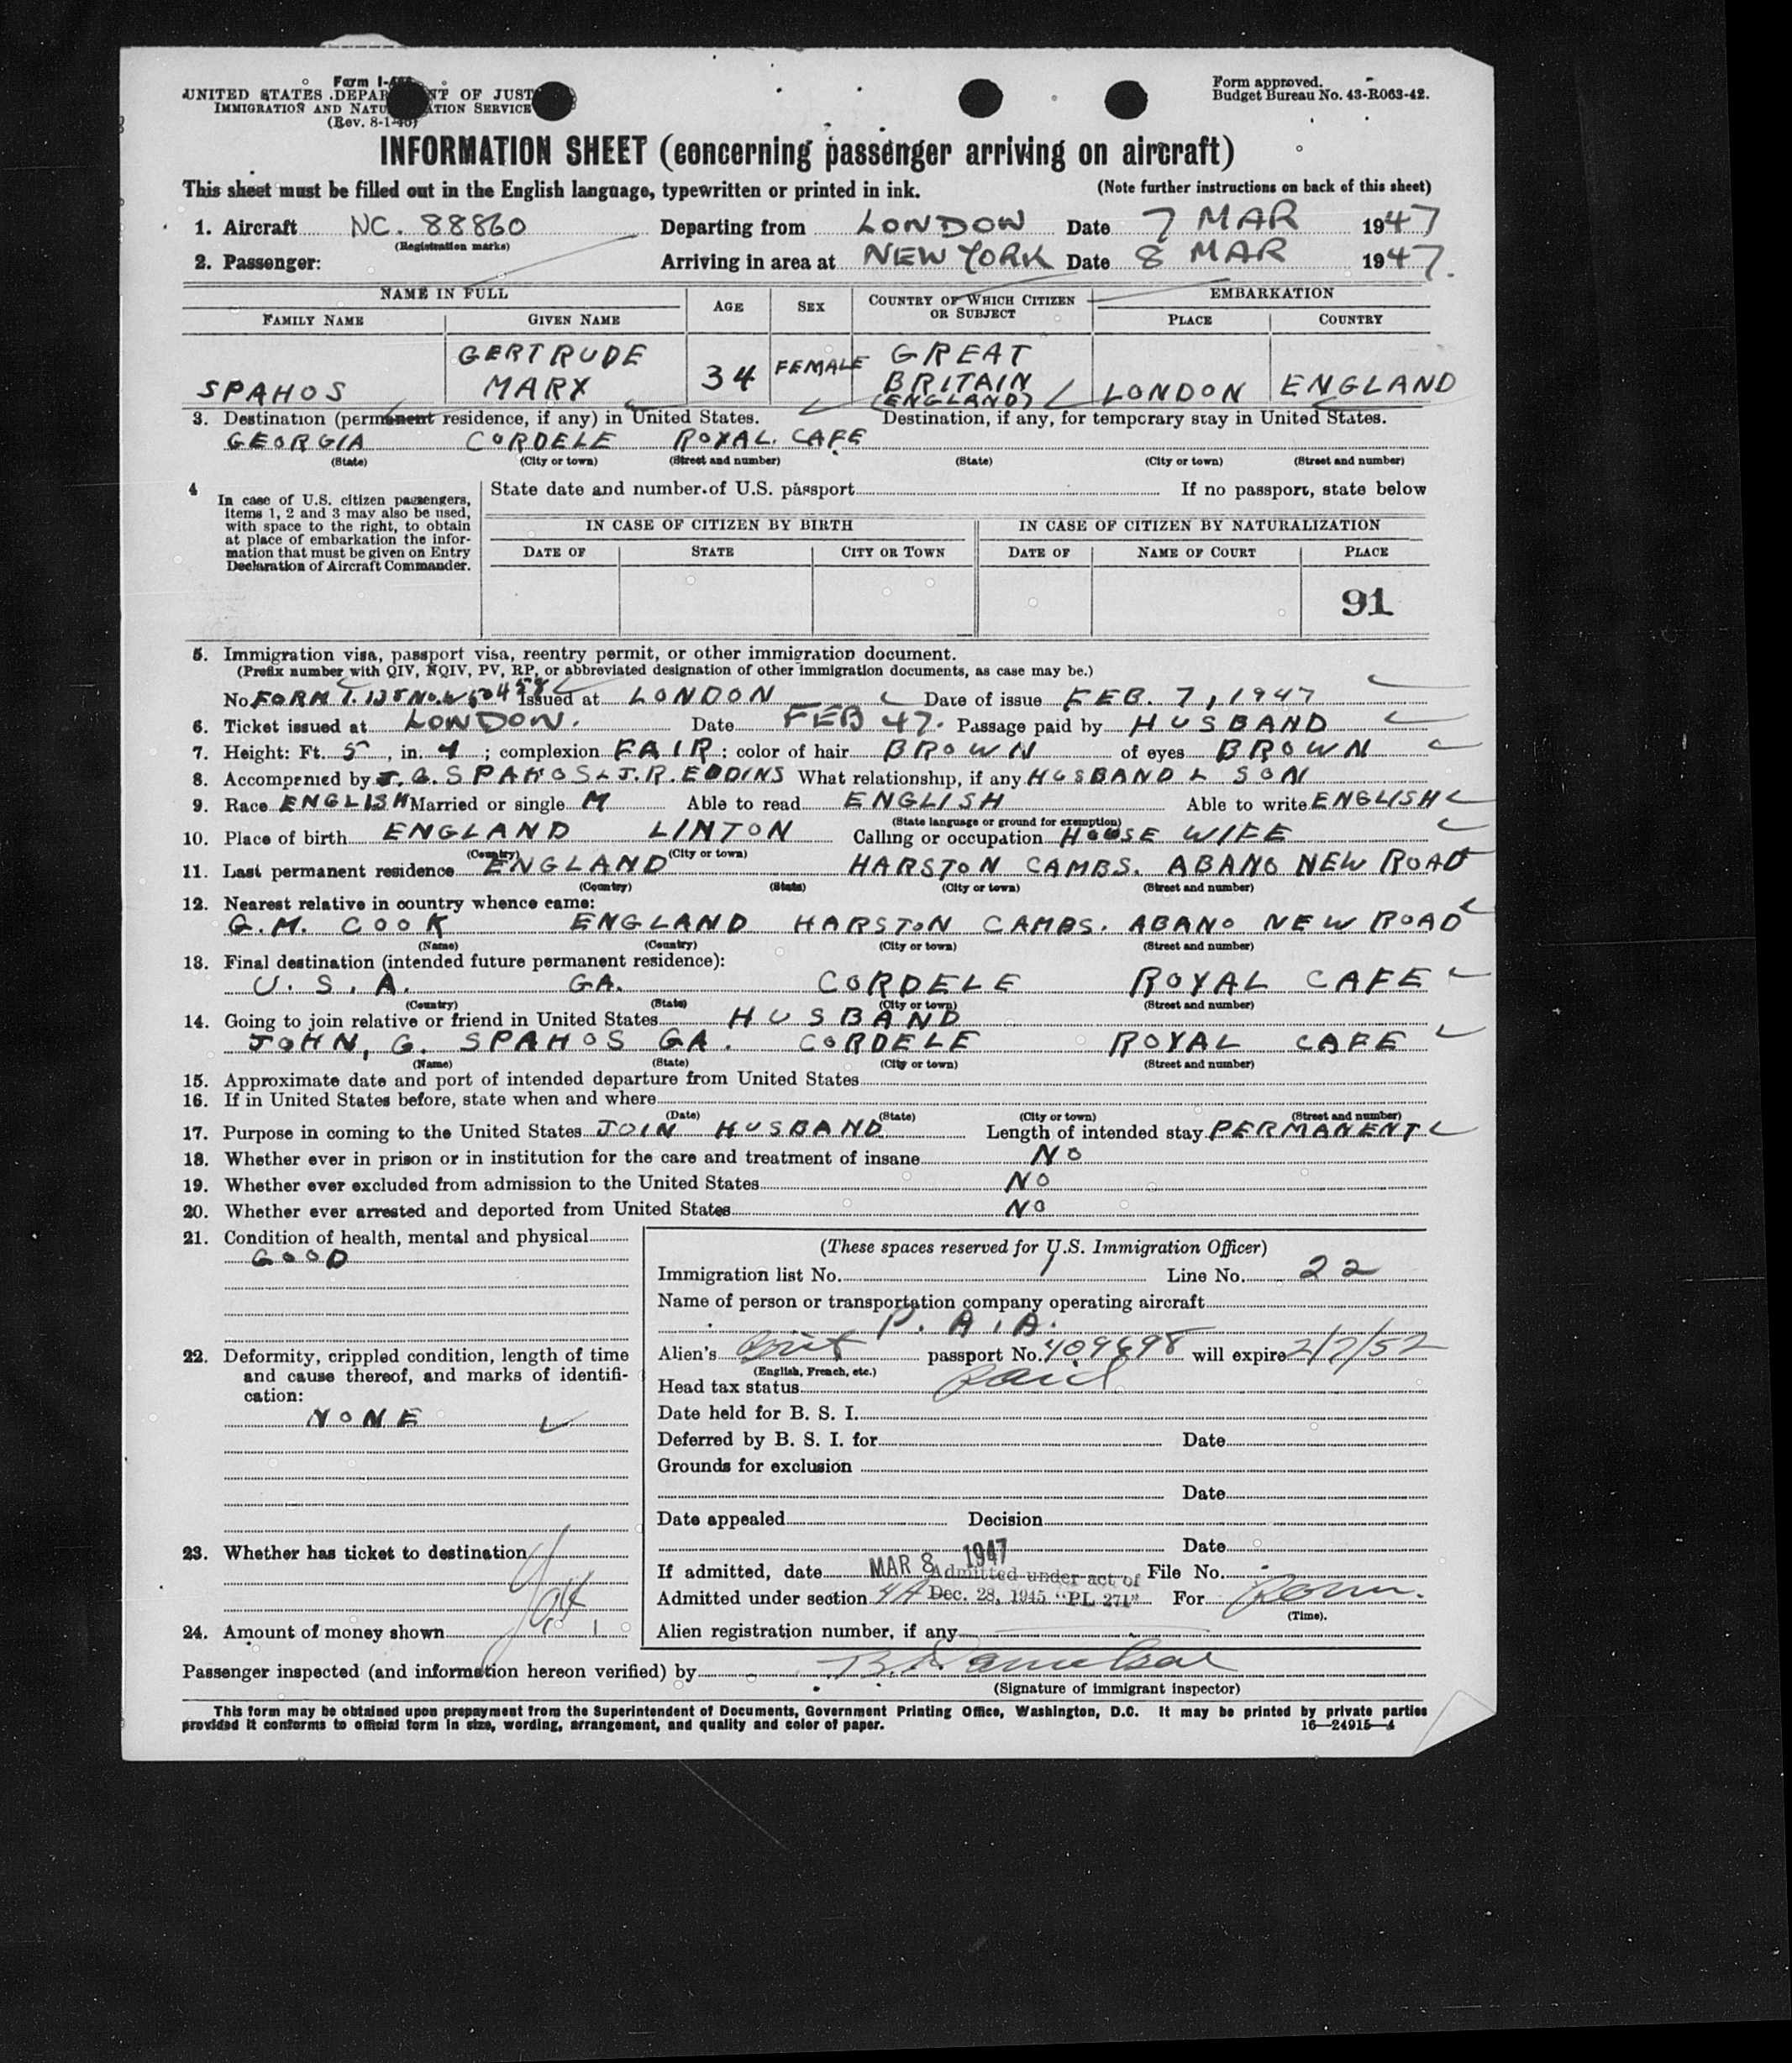 Form I-466
UNITED STATES DEPARTMENT OF JUSTICE
IMMIGRATION AND NATURALIZATION SERVICE
(Rev. 8-1-46)
Form approved.
Budget Bureau No. 43-R063-42.
INFORMATION SHEET (concerning passenger arriving on aircraft)
This sheet must be filled out in the English language, typewritten or printed in ink. (Note further instructions on back of this sheet)
1. Aircraft NC. 88860 Departing from LONDON Date 7 MAR 1947
(Registration marks)
2. Passenger: Arriving in area at NEW YORK Date 8 MAR 1947.
NAME IN FULL AGE SEX COUNTRY OF WHICH CITIZEN OR SUBJECT EMBARKATION
FAMILY NAME GIVEN NAME PLACE COUNTRY
SPAHOS GERTRUDE MARX 34 FEMALE GREAT BRITAIN (ENGLAND) LONDON ENGLAND
3. Destination (permanent residence, if any) in United States. Destination, if any, for temporary stay in United States.
GEORGIA CORDELE ROYAL. CAFE
(State) (City or town) (Street and number) (State) (City or town) (Street and number)
4 In case of U.S. citizen passengers, items 1, 2 and 3 may also be used, with space to the right, to obtain at place of embarkation the information that must be given on Entry Declaration of Aircraft Commander.
State date and number of U.S. passport If no passport, state below
IN CASE OF CITIZEN BY BIRTH IN CASE OF CITIZEN BY NATURALIZATION
DATE OF STATE CITY OR TOWN DATE OF NAME OF COURT PLACE
91
5. Immigration visa, passport visa, reentry permit, or other immigration document.
(Prefix number with QIV, NQIV, PV, RP, or abbreviated designation of other immigration documents, as case may be.)
No. FORM Issued at LONDON Date of issue FEB. 7, 1947
6. Ticket issued at LONDON. Date FEB 47. Passage paid by HUSBAND
7. Height: Ft. 5, in. 4; complexion FAIR; color of hair BROWN of eyes BROWN
8. Accompanied by J. G. SPAHOS & J.R. EDDINS What relationship, if any HUSBAND & SON
9. Race ENGLISH Married or single M Able to read ENGLISH Able to write ENGLISH
(State language or ground for exemption)
10. Place of birth ENGLAND LINTON Calling or occupation HOUSE WIFE
(Country) (City or town)
11. Last permanent residence ENGLAND HARSTON CAMBS. ABANO NEW ROAD
(Country) (State) (City or town) (Street and number)
12. Nearest relative in country whence came:
G.M. COOK ENGLAND HARSTON CAMBS. ABANO NEW ROAD
(Name) (Country) (City or town) (Street and number)
13. Final destination (intended future permanent residence):
U. S. A. GA. CORDELE ROYAL CAFE
(Country) (State) (City or town) (Street and number)
14. Going to join relative or friend in United States HUSBAND
JOHN, G. SPAHOS GA. CORDELE ROYAL CAFE
(Name) (State) (City or town) (Street and number)
15. Approximate date and port of intended departure from United States
16. If in United States before, state when and where
(Date) (State) (City or town) (Street and number)
17. Purpose in coming to the United States JOIN HUSBAND Length of intended stay PERMANENT
18. Whether ever in prison or in institution for the care and treatment of insane NO
19. Whether ever excluded from admission to the United States NO
20. Whether ever arrested and deported from United States NO
21. Condition of health, mental and physical
GOOD
22. Deformity, crippled condition, length of time and cause thereof, and marks of identification:
NONE
23. Whether has ticket to destination
24. Amount of money shown
(These spaces reserved for U.S. Immigration Officer)
Immigration list No. 1 Line No. 22
Name of person or transportation company operating aircraft
P. A. A.
Alien's Brit passport No. 409698 will expire 2/7/52
(English, French, etc.)
Head tax status Paid
Date held for B. S. I.
Deferred by B. S. I. for Date
Grounds for exclusion
Date
Date appealed Decision
Date
If admitted, date MAR 8 1947 File No.
Admitted under section 4A Admitted under act of Dec. 28, 1945 "PL 271" For Perm.
(Time).
Alien registration number, if any
Passenger inspected (and information hereon verified) by
(Signature of immigrant inspector)
This form may be obtained upon prepayment from the Superintendent of Documents, Government Printing Office, Washington, D.C. It may be printed by private parties
provided it conforms to official form in size, wording, arrangement, and quality and color of paper. 16—24915—4